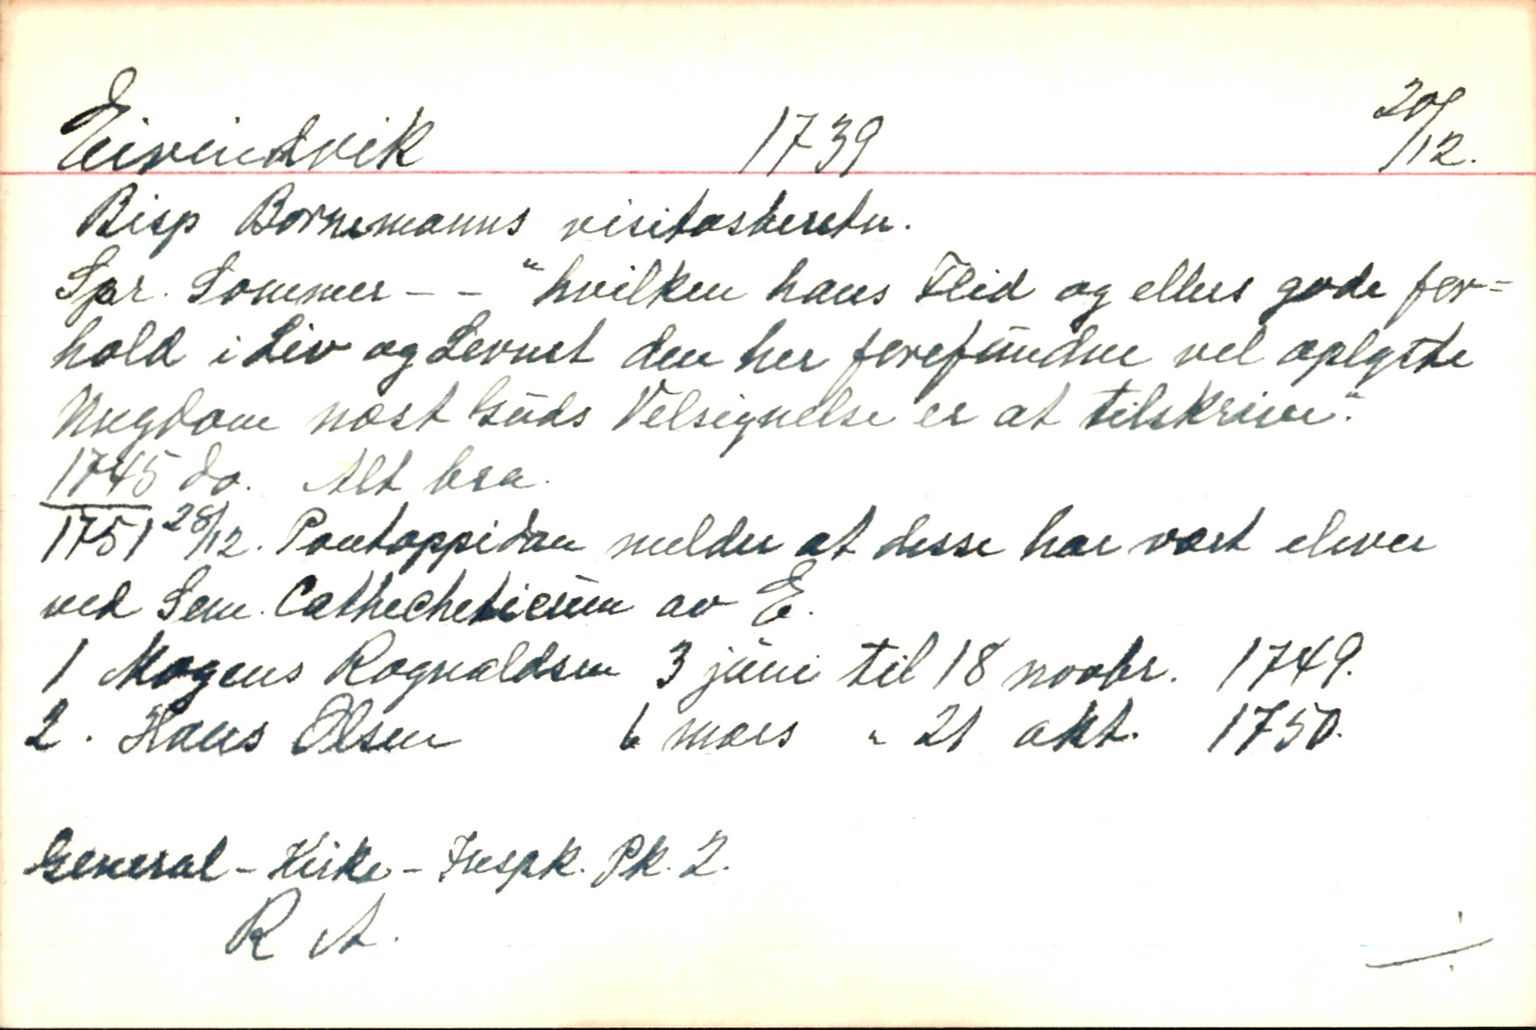 Eivindvik 1739 20/12.
Bisp Bornemanns visitasberetn.
Spr. Sommer - - "hvilken hans Flid og ellers gode for=
hold i Liv og Levnet den her forefundne vel oplyste
Ungdom næst Guds Velsignelse er at tilskrive".
1745 do. Alt bra.
1751 28/12. Pontoppidan melder at desse har vært elever
ved Sem. Cathecheticum av E.
1 Mogens Rognaldsen 3 juni til 18 novbr. 1749.
2. Hans Olsen 6 mars " 21 okt. 1750.
General-Kirke-Inspk. Pk. 2.
R A.